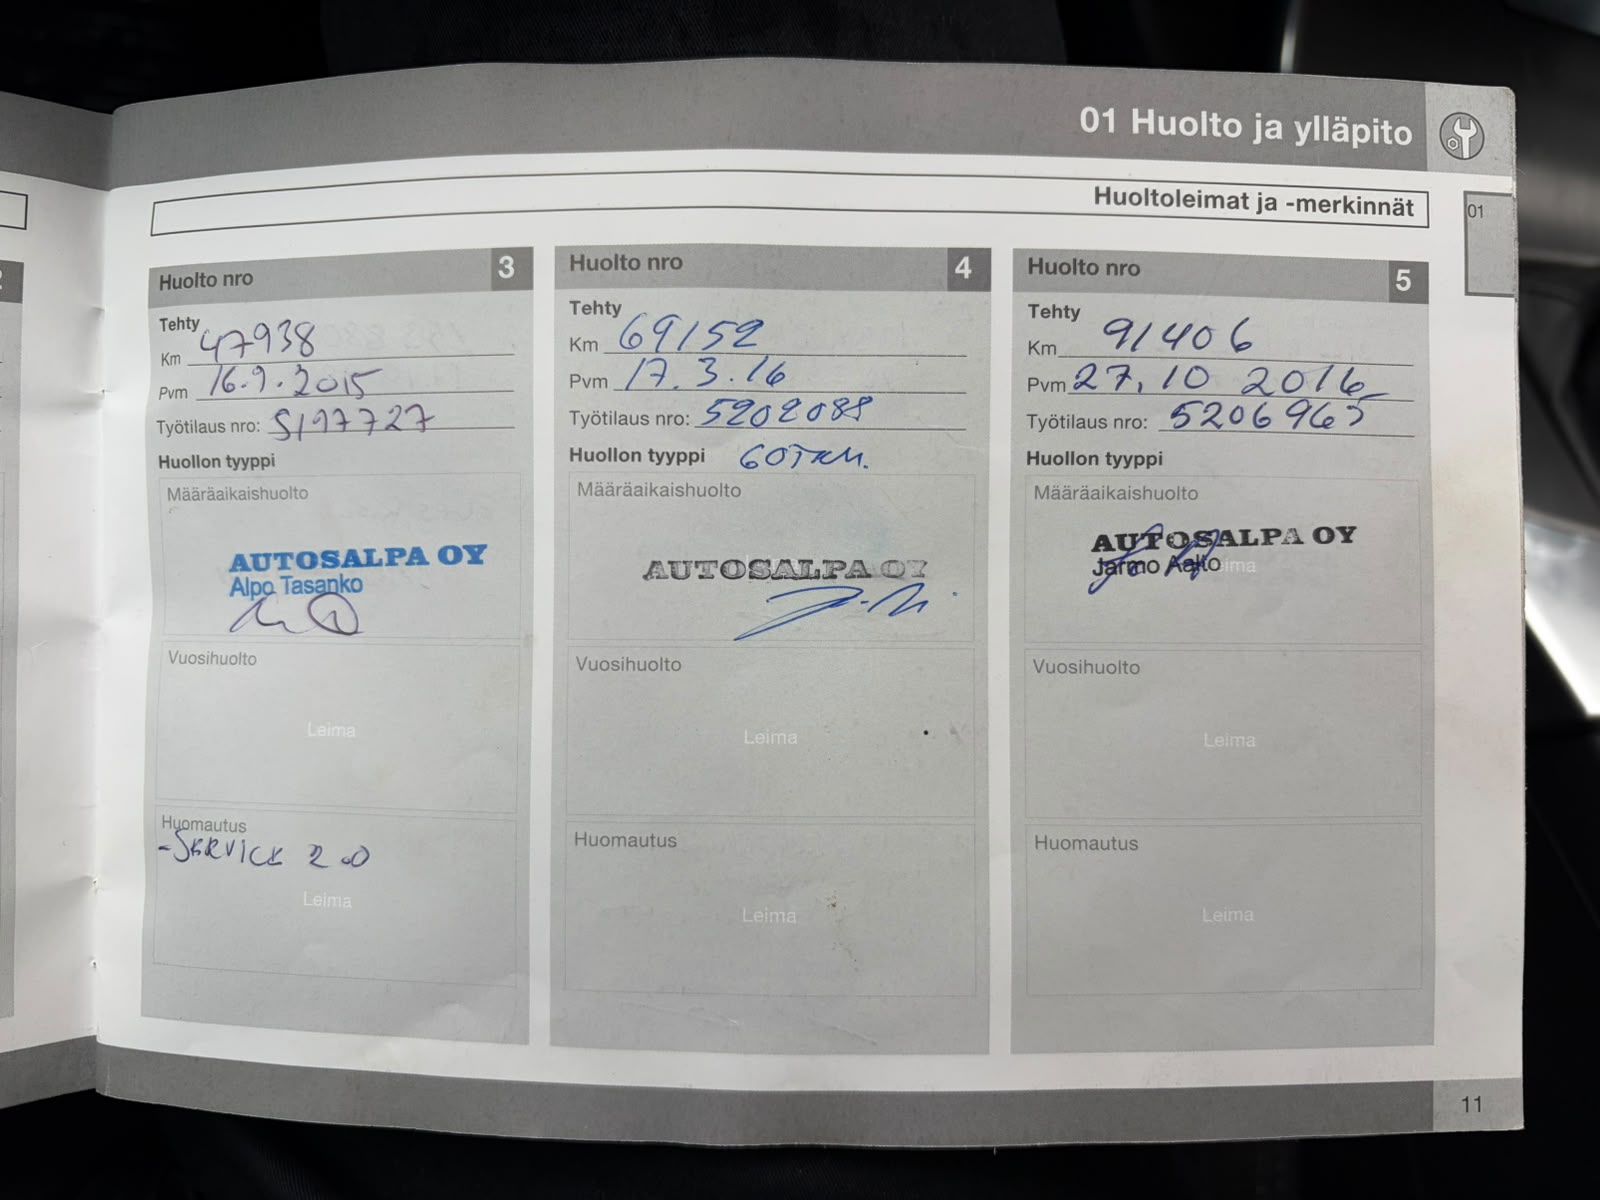 01 Huolto ja ylläpito
Huoltoleimat ja -merkinnät
01
Huolto nro 3
Tehty
Km 47938
Pvm 16.9.2015
Työtilaus nro: 5197727
Huollon tyyppi
Määräaikaishuolto
AUTOSALPA OY
Alpo Tasanko
Vuosihuolto
Leima
Huomautus
-SERVICE 2.0
Leima
Huolto nro 4
Tehty
Km 69152
Pvm 17.3.16
Työtilaus nro: 5202088
Huollon tyyppi 60TKM.
Määräaikaishuolto
AUTOSALPA OY
Vuosihuolto
Leima
Huomautus
Leima
Huolto nro 5
Tehty
Km 91406
Pvm 27.10 2016
Työtilaus nro: 5206965
Huollon tyyppi
Määräaikaishuolto
AUTOSALPA OY
Jarmo Aalto
Vuosihuolto
Leima
Huomautus
Leima
11